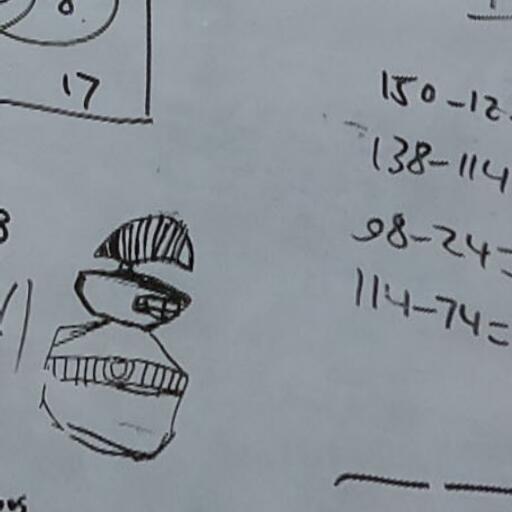 8
17
150-12
138-114
98-24=
114-74=